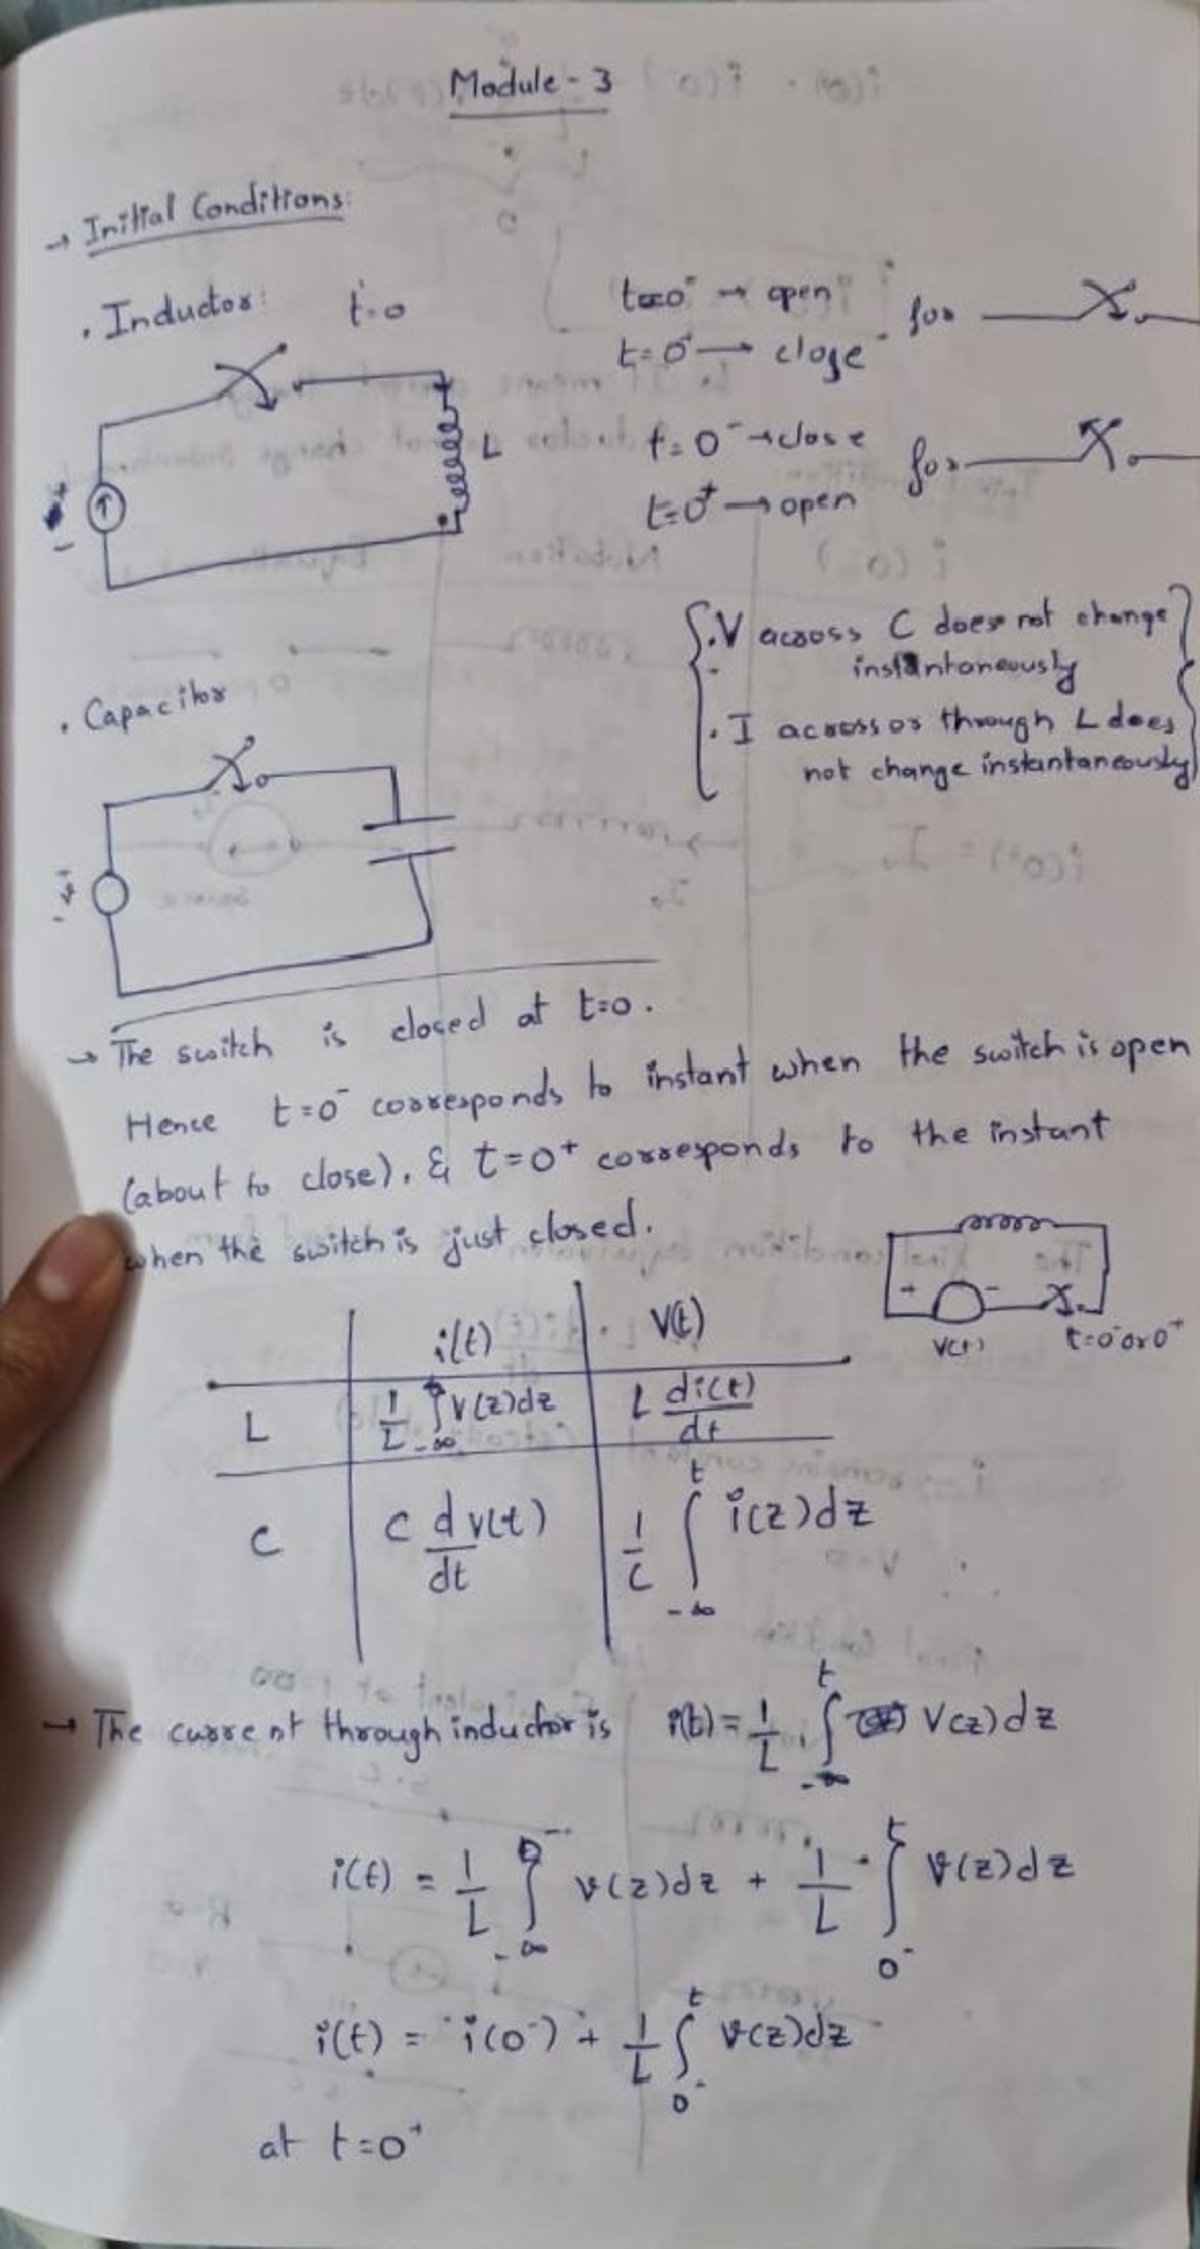 Module - 3
→ Initial Conditions:
. Inductor: t=0
t=0⁻ → open
t=0⁻ → close
for
L
t=0⁻ → close
t=0⁺ → open
for
+
-
{ . V across C does not change
instantaneously
. I across or through L does
not change instantaneously }
. Capacitor
+
v
-
→ The switch is closed at t=0.
Hence t=0⁻ corresponds to instant when the switch is open
(about to close). & t=0⁺ corresponds to the instant
when the switch is just closed.
+ -
V(t) t=0⁻ or 0⁺
i(t) V(t)
L 1/L ∫_{-∞}^{t} V(z)dz L di(t)/dt
C C d v(t)/dt 1/C ∫_{-∞}^{t} i(z)dz
→ The current through inductor is i(t) = 1/L ∫_{-∞}^{t} V(z)dz
i(t) = 1/L ∫_{-∞}^{0⁻} v(z)dz + 1/L ∫_{0⁻}^{t} v(z)dz
i(t) = i(0⁻) + 1/L ∫_{0⁻}^{t} v(z)dz
at t=0⁺